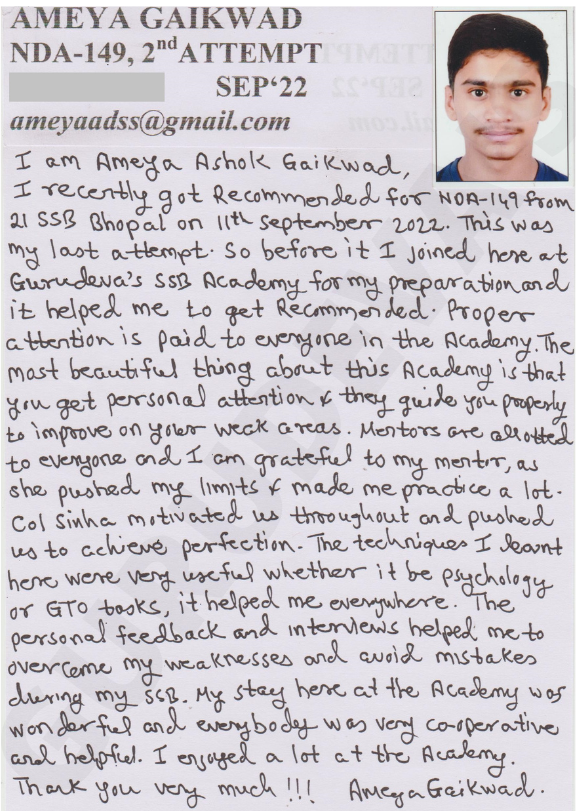 AMEYA GAIKWAD
NDA-149, 2nd ATTEMPT
SEP‘22
ameyaadss@gmail.com
I am Ameya Ashok Gaikwad,
I recently got Recommended for NDA-149 from
21 SSB Bhopal on 11th September 2022. This was
my last attempt. So before it I joined here at
Gurudeva's SSB Academy for my preparation and
it helped me to get Recommended. Proper
attention is paid to everyone in the Academy. The
most beautiful thing about this Academy is that
you get personal attention & they guide you properly
to improve on your weak areas. Mentors are allotted
to everyone and I am grateful to my mentor, as
she pushed my limits & made me practice a lot.
Col Sinha motivated us throughout and pushed
us to achieve perfection. The techniques I learnt
here were very useful whether it be psychology
or GTO tasks, it helped me everywhere. The
personal feedback and interviews helped me to
overcome my weaknesses and avoid mistakes
during my SSB. My stay here at the Academy was
wonderful and everybody was very co-operative
and helpful. I enjoyed a lot at the Academy.
Thank you very much !!! Ameya Gaikwad.